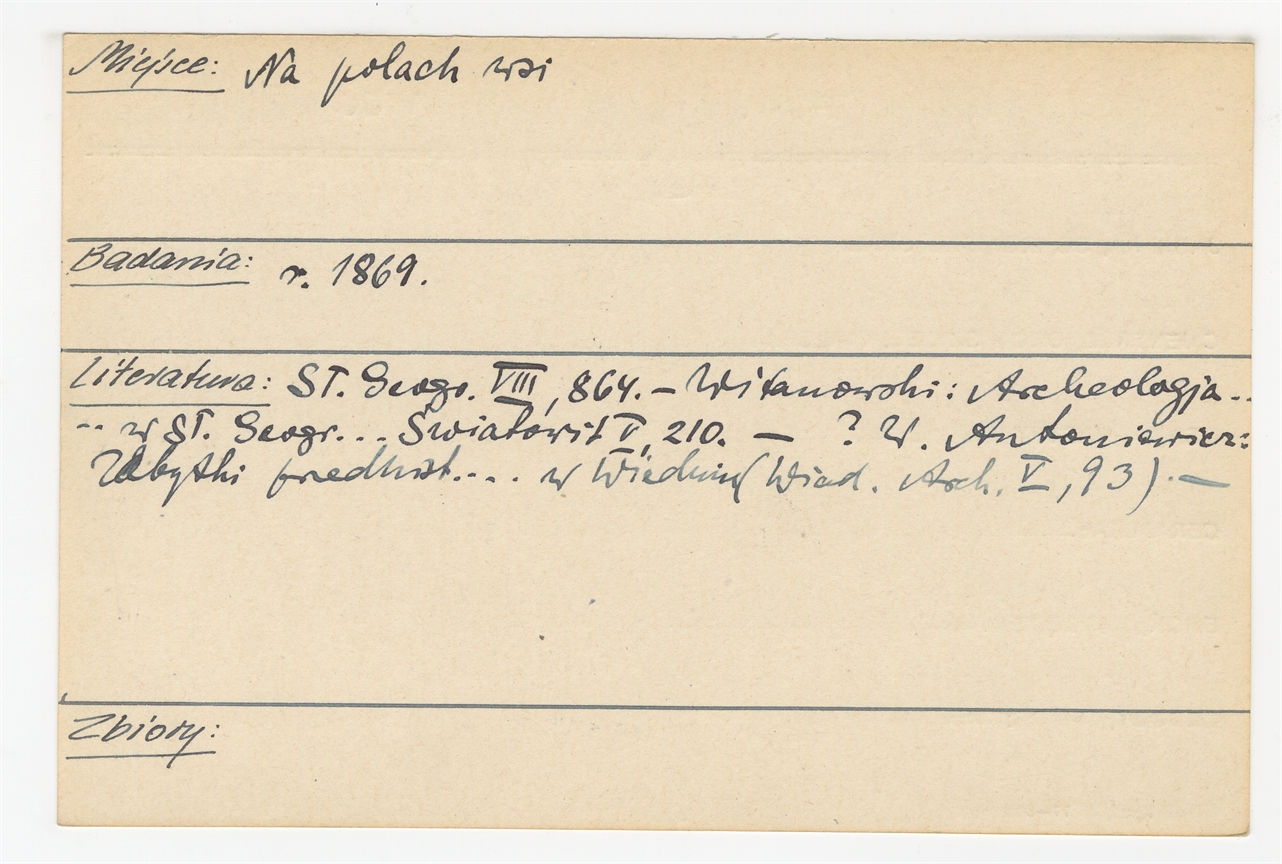 Miejsce: Na polach wsi
Badania: r. 1869.
Literatura: Sł. Geogr. VIII, 864. – Witanowski: Archeologja..
.. w Sł. Geogr... Światowit V, 210. — ? W. Antoniewicz:
Zabytki przedhist.... w Wiedniu (Wiad. Arch. V, 93). —
Zbiory: